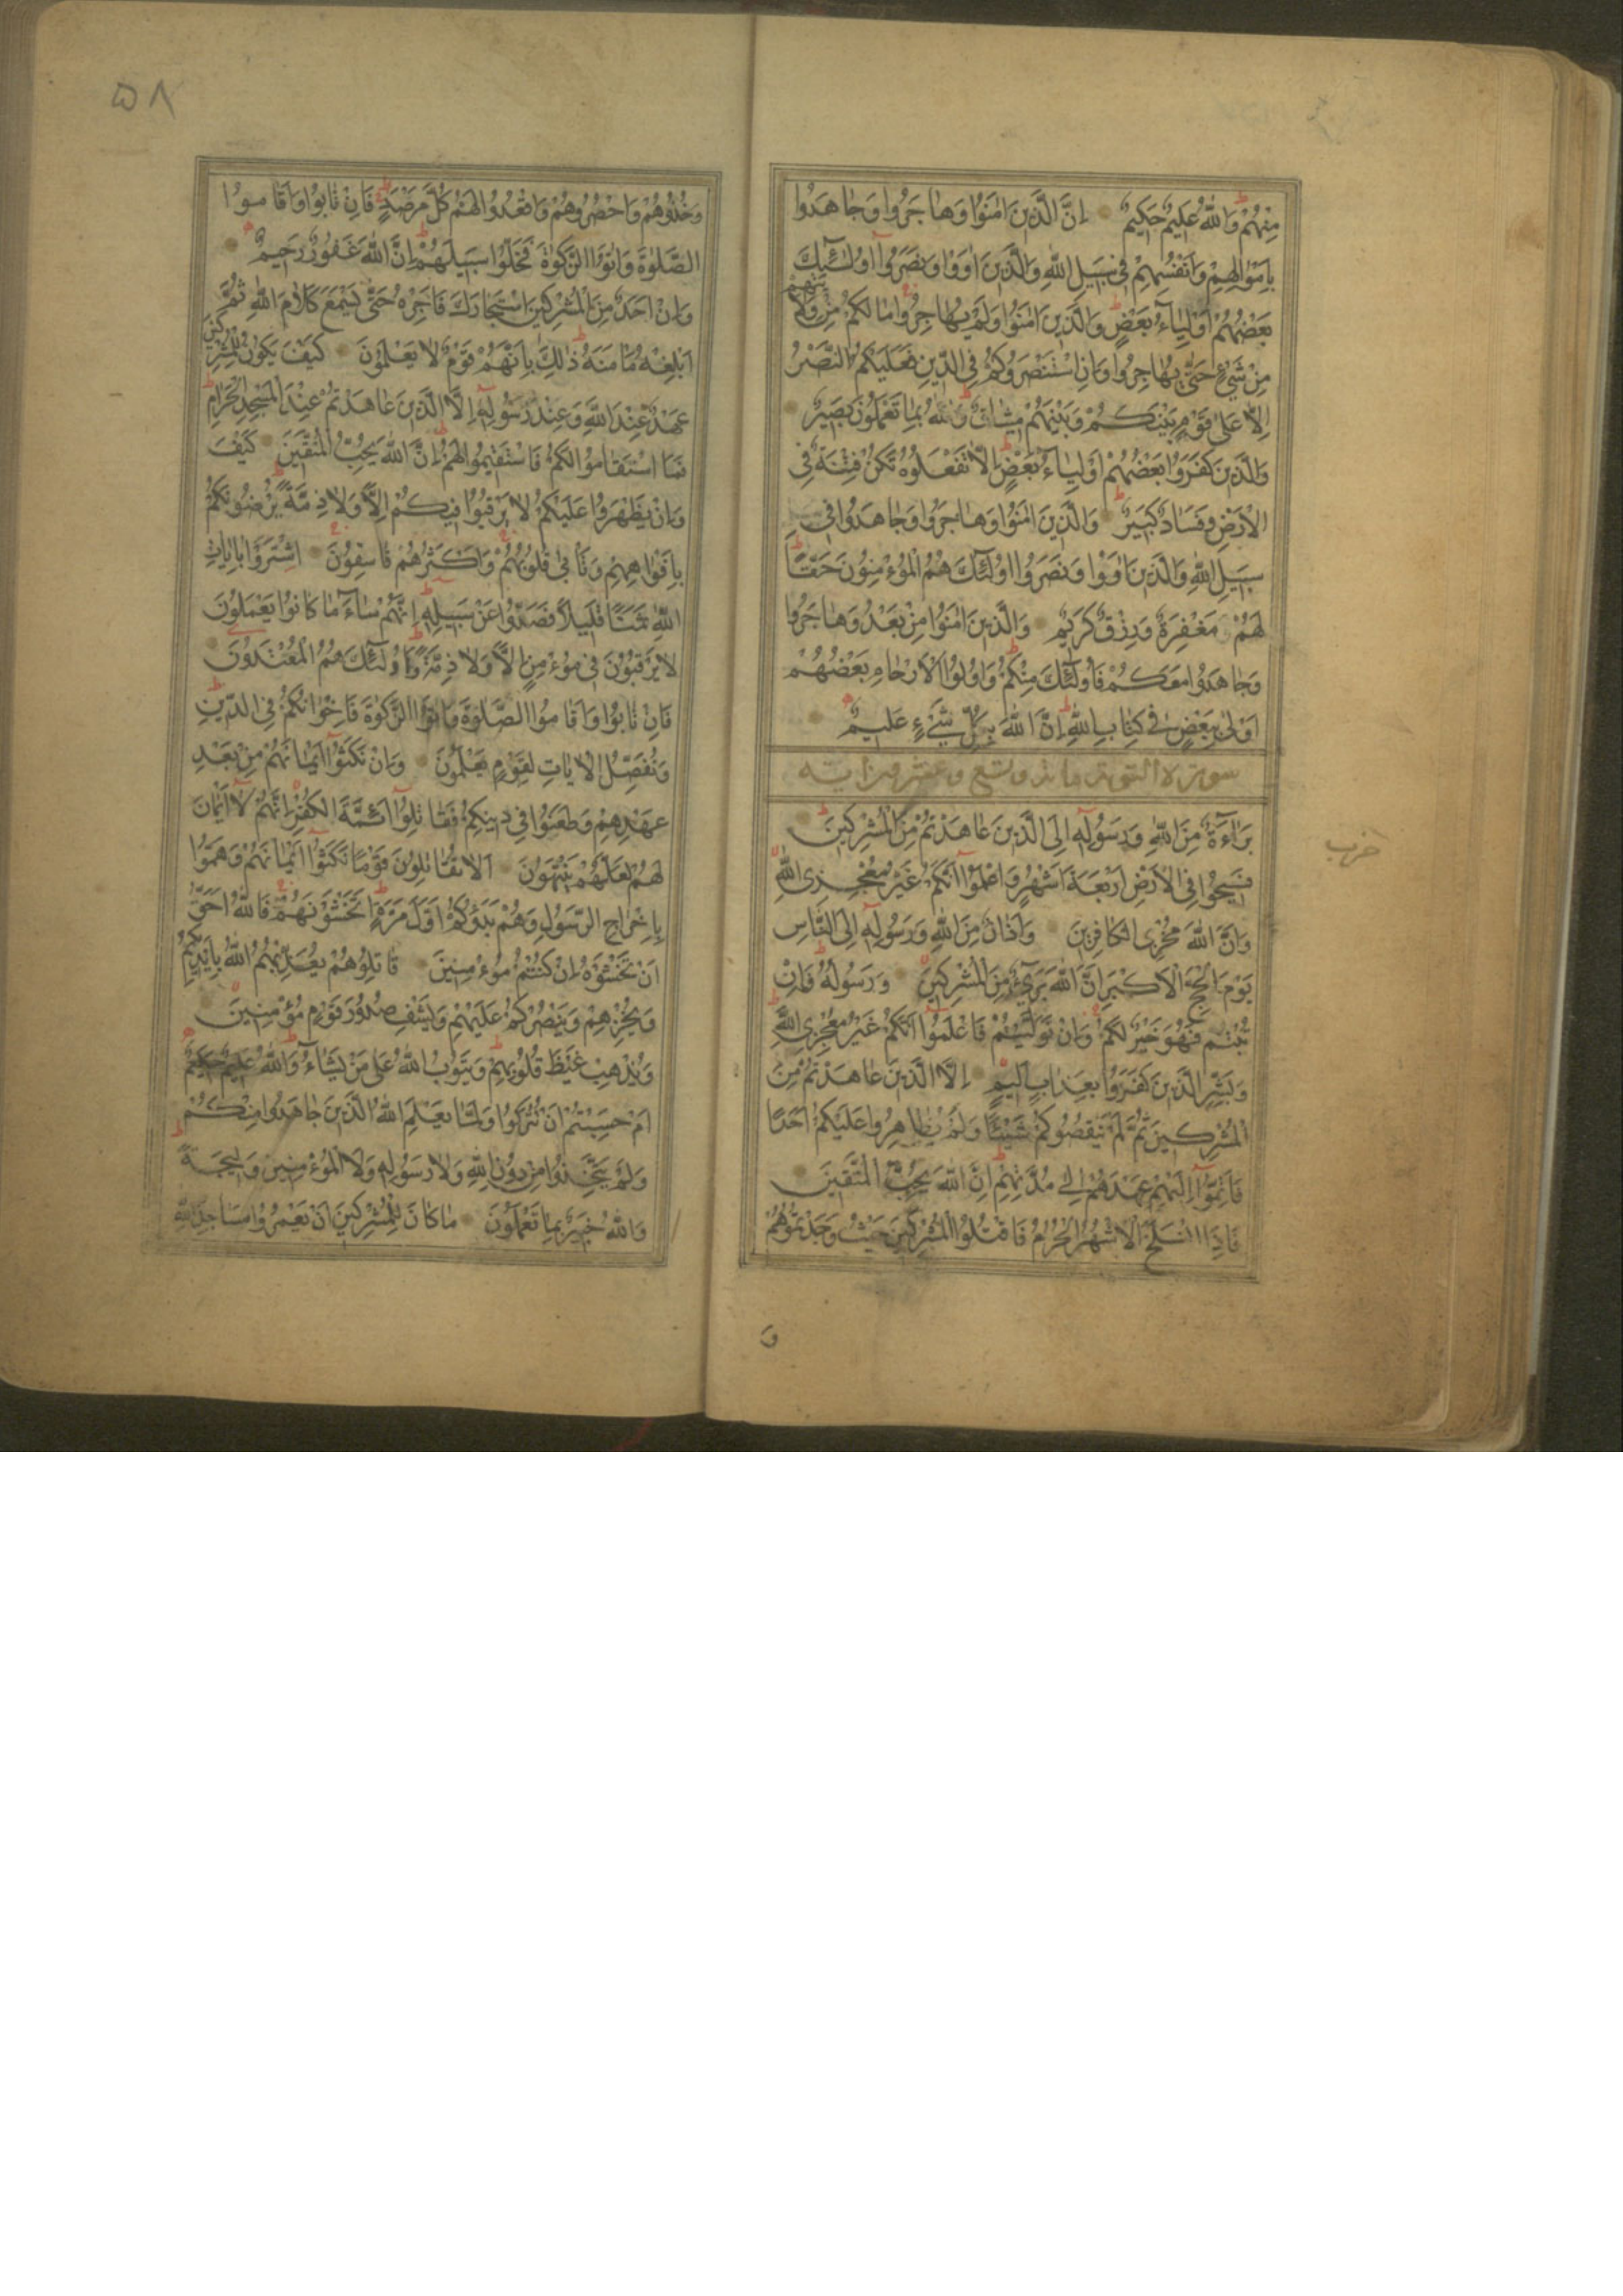 مِنْهُمْ وَاللّٰهُ عَلِيمٌ حَكِيمٌ اِنَّ الَّذِينَ اٰمَنُوا وَهَاجَرُوا وَجَاهَدُوا
بِاَمْوَالِهِمْ وَاَنْفُسِهِمْ فِى سَبِيلِ اللّٰهِ وَالَّذِينَ اٰوَوْا وَنَصَرُوا اُولٰٓئِكَ
بَعْضُهُمْ اَوْلِيَآءُ بَعْضٍ وَالَّذِينَ اٰمَنُوا وَلَمْ يُهَاجِرُوا مَا لَكُمْ مِنْ وَلَايَتِهِمْ
مِنْ شَىْءٍ حَتّٰى يُهَاجِرُوا وَاِنِ اسْتَنْصَرُوكُمْ فِى الدِّينِ فَعَلَيْكُمُ النَّصْرُ
اِلَّا عَلٰى قَوْمٍ بَيْنَكُمْ وَبَيْنَهُمْ مِيثَاقٌ وَاللّٰهُ بِمَا تَعْمَلُونَ بَصِيرٌ
وَالَّذِينَ كَفَرُوا بَعْضُهُمْ اَوْلِيَآءُ بَعْضٍ اِلَّا تَفْعَلُوهُ تَكُنْ فِتْنَةٌ فِى
الْاَرْضِ وَفَسَادٌ كَبِيرٌ وَالَّذِينَ اٰمَنُوا وَهَاجَرُوا وَجَاهَدُوا فِى
سَبِيلِ اللّٰهِ وَالَّذِينَ اٰوَوْا وَنَصَرُوا اُولٰٓئِكَ هُمُ الْمُوءْمِنُونَ حَقًّا
لَهُمْ مَغْفِرَةٌ وَرِزْقٌ كَرِيمٌ وَالَّذِينَ اٰمَنُوا مِنْ بَعْدُ وَهَاجَرُوا
وَجَاهَدُوا مَعَكُمْ فَاُولٰٓئِكَ مِنْكُمْ وَاُولُوا الْاَرْحَامِ بَعْضُهُمْ
اَوْلٰى بِبَعْضٍ فِى كِتَابِ اللّٰهِ اِنَّ اللّٰهَ بِكُلِّ شَىْءٍ عَلِيمٌ
سورة التوبة مائة وتسع وعشرون اية
بَرَآءَةٌ مِنَ اللّٰهِ وَرَسُولِهٖ اِلَى الَّذِينَ عَاهَدْتُمْ مِنَ الْمُشْرِكِينَ
حزب
فَسِيحُوا فِى الْاَرْضِ اَرْبَعَةَ اَشْهُرٍ وَاعْلَمُوا اَنَّكُمْ غَيْرُ مُعْجِزِى اللّٰهِ
وَاَنَّ اللّٰهَ مُخْزِى الْكَافِرِينَ وَاَذَانٌ مِنَ اللّٰهِ وَرَسُولِهٖ اِلَى النَّاسِ
يَوْمَ الْحَجِّ الْاَكْبَرِ اَنَّ اللّٰهَ بَرِىٓءٌ مِنَ الْمُشْرِكِينَ وَرَسُولُهُ فَاِنْ
تُبْتُمْ فَهُوَ خَيْرٌ لَكُمْ وَاِنْ تَوَلَّيْتُمْ فَاعْلَمُوا اَنَّكُمْ غَيْرُ مُعْجِزِى اللّٰهِ
وَبَشِّرِ الَّذِينَ كَفَرُوا بِعَذَابٍ اَلِيمٍ اِلَّا الَّذِينَ عَاهَدْتُمْ مِنَ
الْمُشْرِكِينَ ثُمَّ لَمْ يَنْقُصُوكُمْ شَيْئًا وَلَمْ يُظَاهِرُوا عَلَيْكُمْ اَحَدًا
فَاَتِمُّوا اِلَيْهِمْ عَهْدَهُمْ اِلٰى مُدَّتِهِمْ اِنَّ اللّٰهَ يُحِبُّ الْمُتَّقِينَ
فَاِذَا انْسَلَخَ الْاَشْهُرُ الْحُرُمُ فَاقْتُلُوا الْمُشْرِكِينَ حَيْثُ وَجَدْتُمُوهُمْ
و
٥٨
وَخُذُوهُمْ وَاحْصُرُوهُمْ وَاقْعُدُوا لَهُمْ كُلَّ مَرْصَدٍ فَاِنْ تَابُوا وَاَقَامُوا
الصَّلٰوةَ وَاٰتَوُا الزَّكٰوةَ فَخَلُّوا سَبِيلَهُمْ اِنَّ اللّٰهَ غَفُورٌ رَحِيمٌ
وَاِنْ اَحَدٌ مِنَ الْمُشْرِكِينَ اسْتَجَارَكَ فَاَجِرْهُ حَتّٰى يَسْمَعَ كَلَامَ اللّٰهِ ثُمَّ
اَبْلِغْهُ مَأْمَنَهُ ذٰلِكَ بِاَنَّهُمْ قَوْمٌ لَا يَعْلَمُونَ كَيْفَ يَكُونُ لِلْمُشْرِكِينَ
عَهْدٌ عِنْدَ اللّٰهِ وَعِنْدَ رَسُولِهٖ اِلَّا الَّذِينَ عَاهَدْتُمْ عِنْدَ الْمَسْجِدِ الْحَرَامِ
فَمَا اسْتَقَامُوا لَكُمْ فَاسْتَقِيمُوا لَهُمْ اِنَّ اللّٰهَ يُحِبُّ الْمُتَّقِينَ كَيْفَ
وَاِنْ يَظْهَرُوا عَلَيْكُمْ لَا يَرْقُبُوا فِيكُمْ اِلًّا وَلَا ذِمَّةً يُرْضُونَكُمْ
بِاَفْوَاهِهِمْ وَتَأْبٰى قُلُوبُهُمْ وَاَكْثَرُهُمْ فَاسِقُونَ اِشْتَرَوْا بِاٰيَاتِ
اللّٰهِ ثَمَنًا قَلِيلًا فَصَدُّوا عَنْ سَبِيلِهٖ اِنَّهُمْ سَآءَ مَا كَانُوا يَعْمَلُونَ
لَا يَرْقُبُونَ فِى مُوءْمِنٍ اِلًّا وَلَا ذِمَّةً وَاُولٰٓئِكَ هُمُ الْمُعْتَدُونَ
فَاِنْ تَابُوا وَاَقَامُوا الصَّلٰوةَ وَاٰتَوُا الزَّكٰوةَ فَاِخْوَانُكُمْ فِى الدِّينِ
وَنُفَصِّلُ الْاٰيَاتِ لِقَوْمٍ يَعْلَمُونَ وَاِنْ نَكَثُوا اَيْمَانَهُمْ مِنْ بَعْدِ
عَهْدِهِمْ وَطَعَنُوا فِى دِينِكُمْ فَقَاتِلُوا اَئِمَّةَ الْكُفْرِ اِنَّهُمْ لَا اَيْمَانَ
لَهُمْ لَعَلَّهُمْ يَنْتَهُونَ اَلَا تُقَاتِلُونَ قَوْمًا نَكَثُوا اَيْمَانَهُمْ وَهَمُّوا
بِاِخْرَاجِ الرَّسُولِ وَهُمْ بَدَؤُكُمْ اَوَّلَ مَرَّةٍ اَتَخْشَوْنَهُمْ فَاللّٰهُ اَحَقُّ
اَنْ تَخْشَوْهُ اِنْ كُنْتُمْ مُوءْمِنِينَ قَاتِلُوهُمْ يُعَذِّبْهُمُ اللّٰهُ بِاَيْدِيكُمْ
وَيُخْزِهِمْ وَيَنْصُرْكُمْ عَلَيْهِمْ وَيَشْفِ صُدُورَ قَوْمٍ مُؤْمِنِينَ
وَيُذْهِبْ غَيْظَ قُلُوبِهِمْ وَيَتُوبُ اللّٰهُ عَلٰى مَنْ يَشَآءُ وَاللّٰهُ عَلِيمٌ حَكِيمٌ
اَمْ حَسِبْتُمْ اَنْ تُتْرَكُوا وَلَمَّا يَعْلَمِ اللّٰهُ الَّذِينَ جَاهَدُوا مِنْكُمْ
وَلَمْ يَتَّخِذُوا مِنْ دُونِ اللّٰهِ وَلَا رَسُولِهٖ وَلَا الْمُوءْمِنِينَ وَلِيجَةً
وَاللّٰهُ خَبِيرٌ بِمَا تَعْمَلُونَ مَا كَانَ لِلْمُشْرِكِينَ اَنْ يَعْمُرُوا مَسَاجِدَ اللّٰهِ